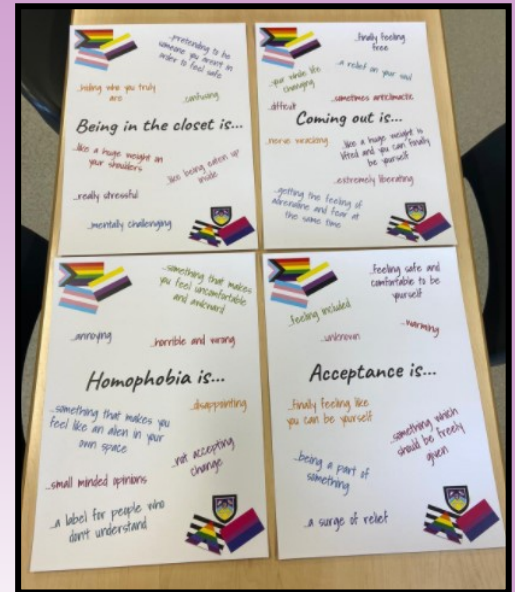 ...pretending to be
someone you aren't in
order to feel safe
...hiding who you truly
are
...confusing
Being in the closet is...
...like a huge weight on
your shoulders
...like being eaten up
inside
...really stressful
...mentally challenging
...finally feeling
free
...a relief on your soul
...your whole life
changing
...sometimes anticlimactic
...difficult
Coming out is...
...nerve wracking
...like a huge weight is
lifted and you can finally
be yourself
...extremely liberating
...getting the feeling of
adrenaline and fear at
the same time
...something that makes
you feel uncomfortable
and awkward
...annoying
...horrible and wrong
Homophobia is...
...something that makes you
feel like an alien in your
own space
...disappointing
...not accepting
change
...small minded opinions
...a label for people who
don't understand
...feeling safe and
comfortable to be
yourself
...feeling included
...warming
...unknown
Acceptance is...
...finally feeling like
you can be yourself
...something which
should be freely
given
...being a part of
something
...a surge of relief